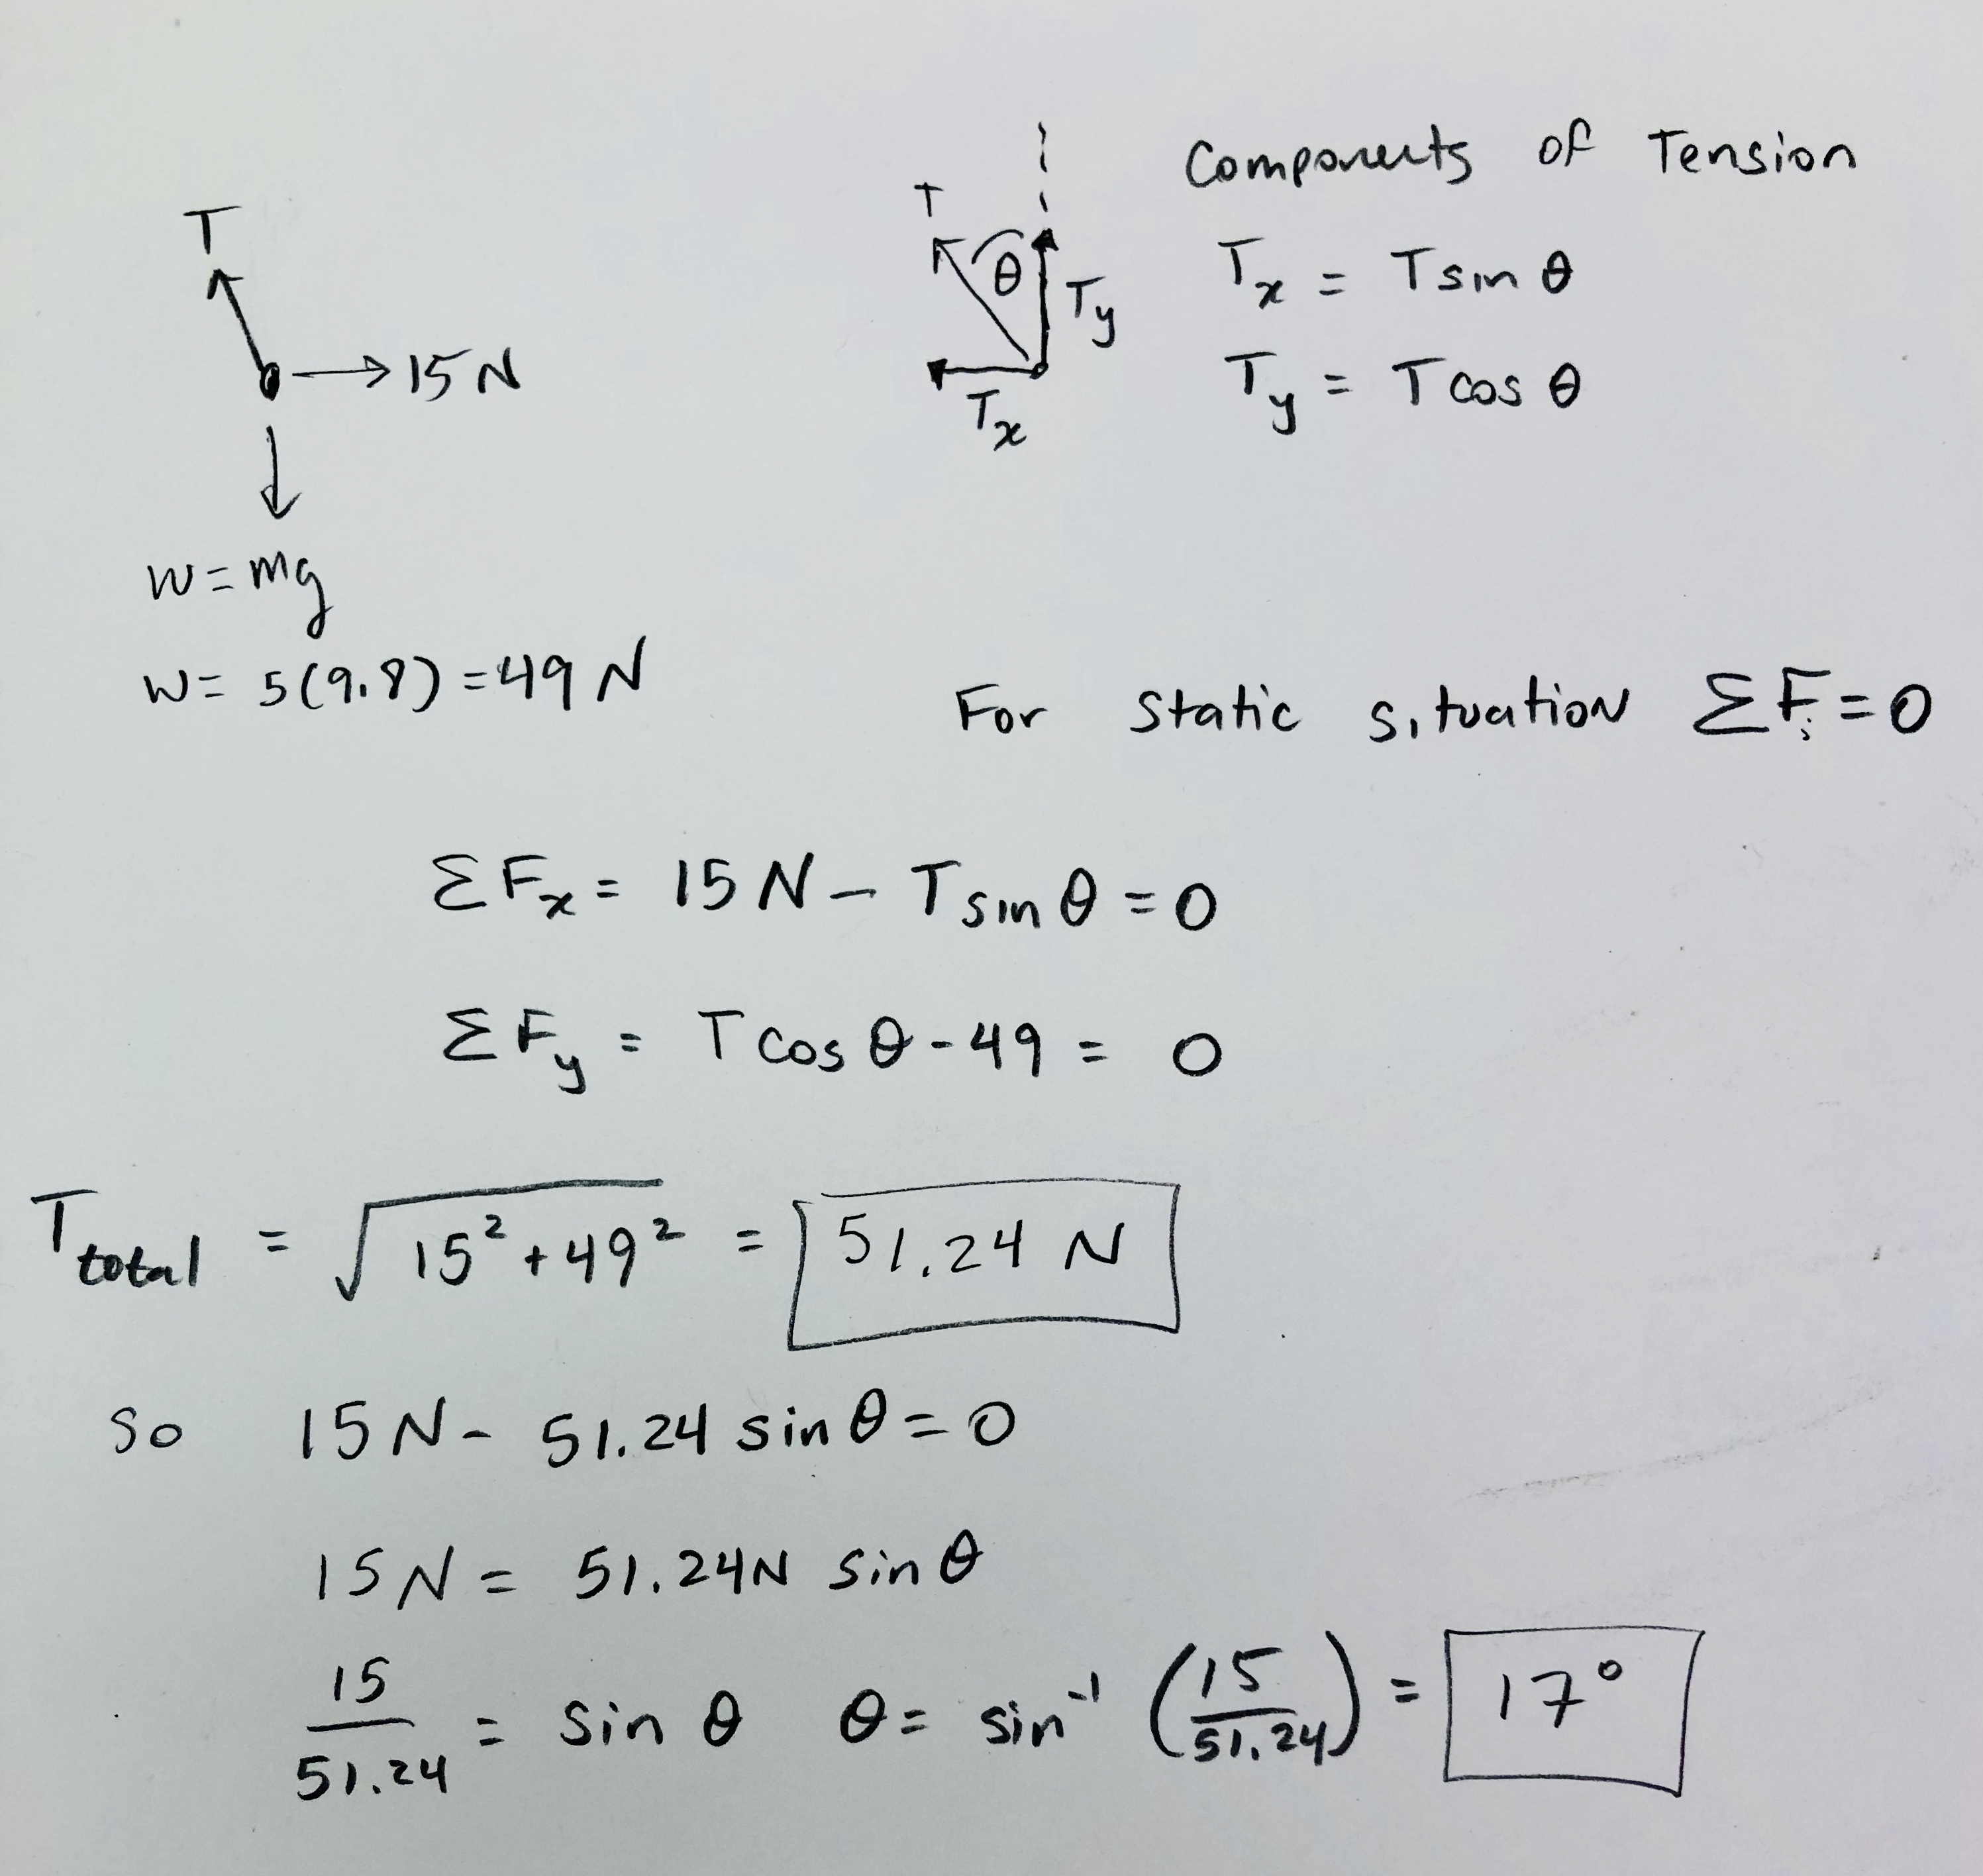 T
15 N
W = mg
W = 5(9.8) = 49 N
T
θ
Ty
Tx
Components of Tension
Tx = T sin θ
Ty = T cos θ
For static situation ΣF = 0
ΣFx = 15 N - T sin θ = 0
ΣFy = T cos θ - 49 = 0
Ttotal = √15² + 49² = 51.24 N
so 15 N - 51.24 sin θ = 0
15 N = 51.24 N sin θ
15/51.24 = sin θ θ = sin⁻¹ (15/51.24) = 17°